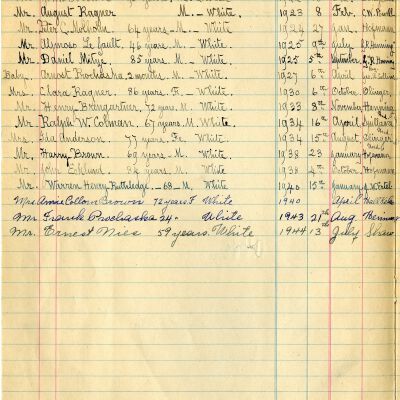 Mr. August Ragner M. - White. 1923 8 Feb. C.W.
Mr. 64 years - M. - White. 1924 27 Jan. Hofmann
Mr. 46 years M. - White. 1925 9th July
Mr. Daniel 85 years - M. - White. 1925 5th September
Baby. Ernest Prochaska 2 months. M. - White. 1927 6th April
Mrs. Clara Ragner. 86 years. Fe - White. 1930 6th October Olinger.
Mr. Henry Baumgartner, 72 years. M. - White. 1933 9th November
Mr. Ralph W. Colman. 67 years. M. White. 1934 16th April
Mrs. Ida Anderson. 77 years. Fe. White. 1934 15th August Olinger
Mr. Harry Brown 69 years. M. White. 1938 23 January Hofmann
Mr. John 84 years. M. White. 1938 4th October Hofmann
Mr. Warren Henry Ruttledge - 68 - M. White. 1940 15th January
Mrs Anna Collom Brown 72 years F White 1940 April
Mr Frank Prochaska 24 " White 1943 21st Aug
Mr. Ernest Nies 59 years. White 1944 13th July Shaw